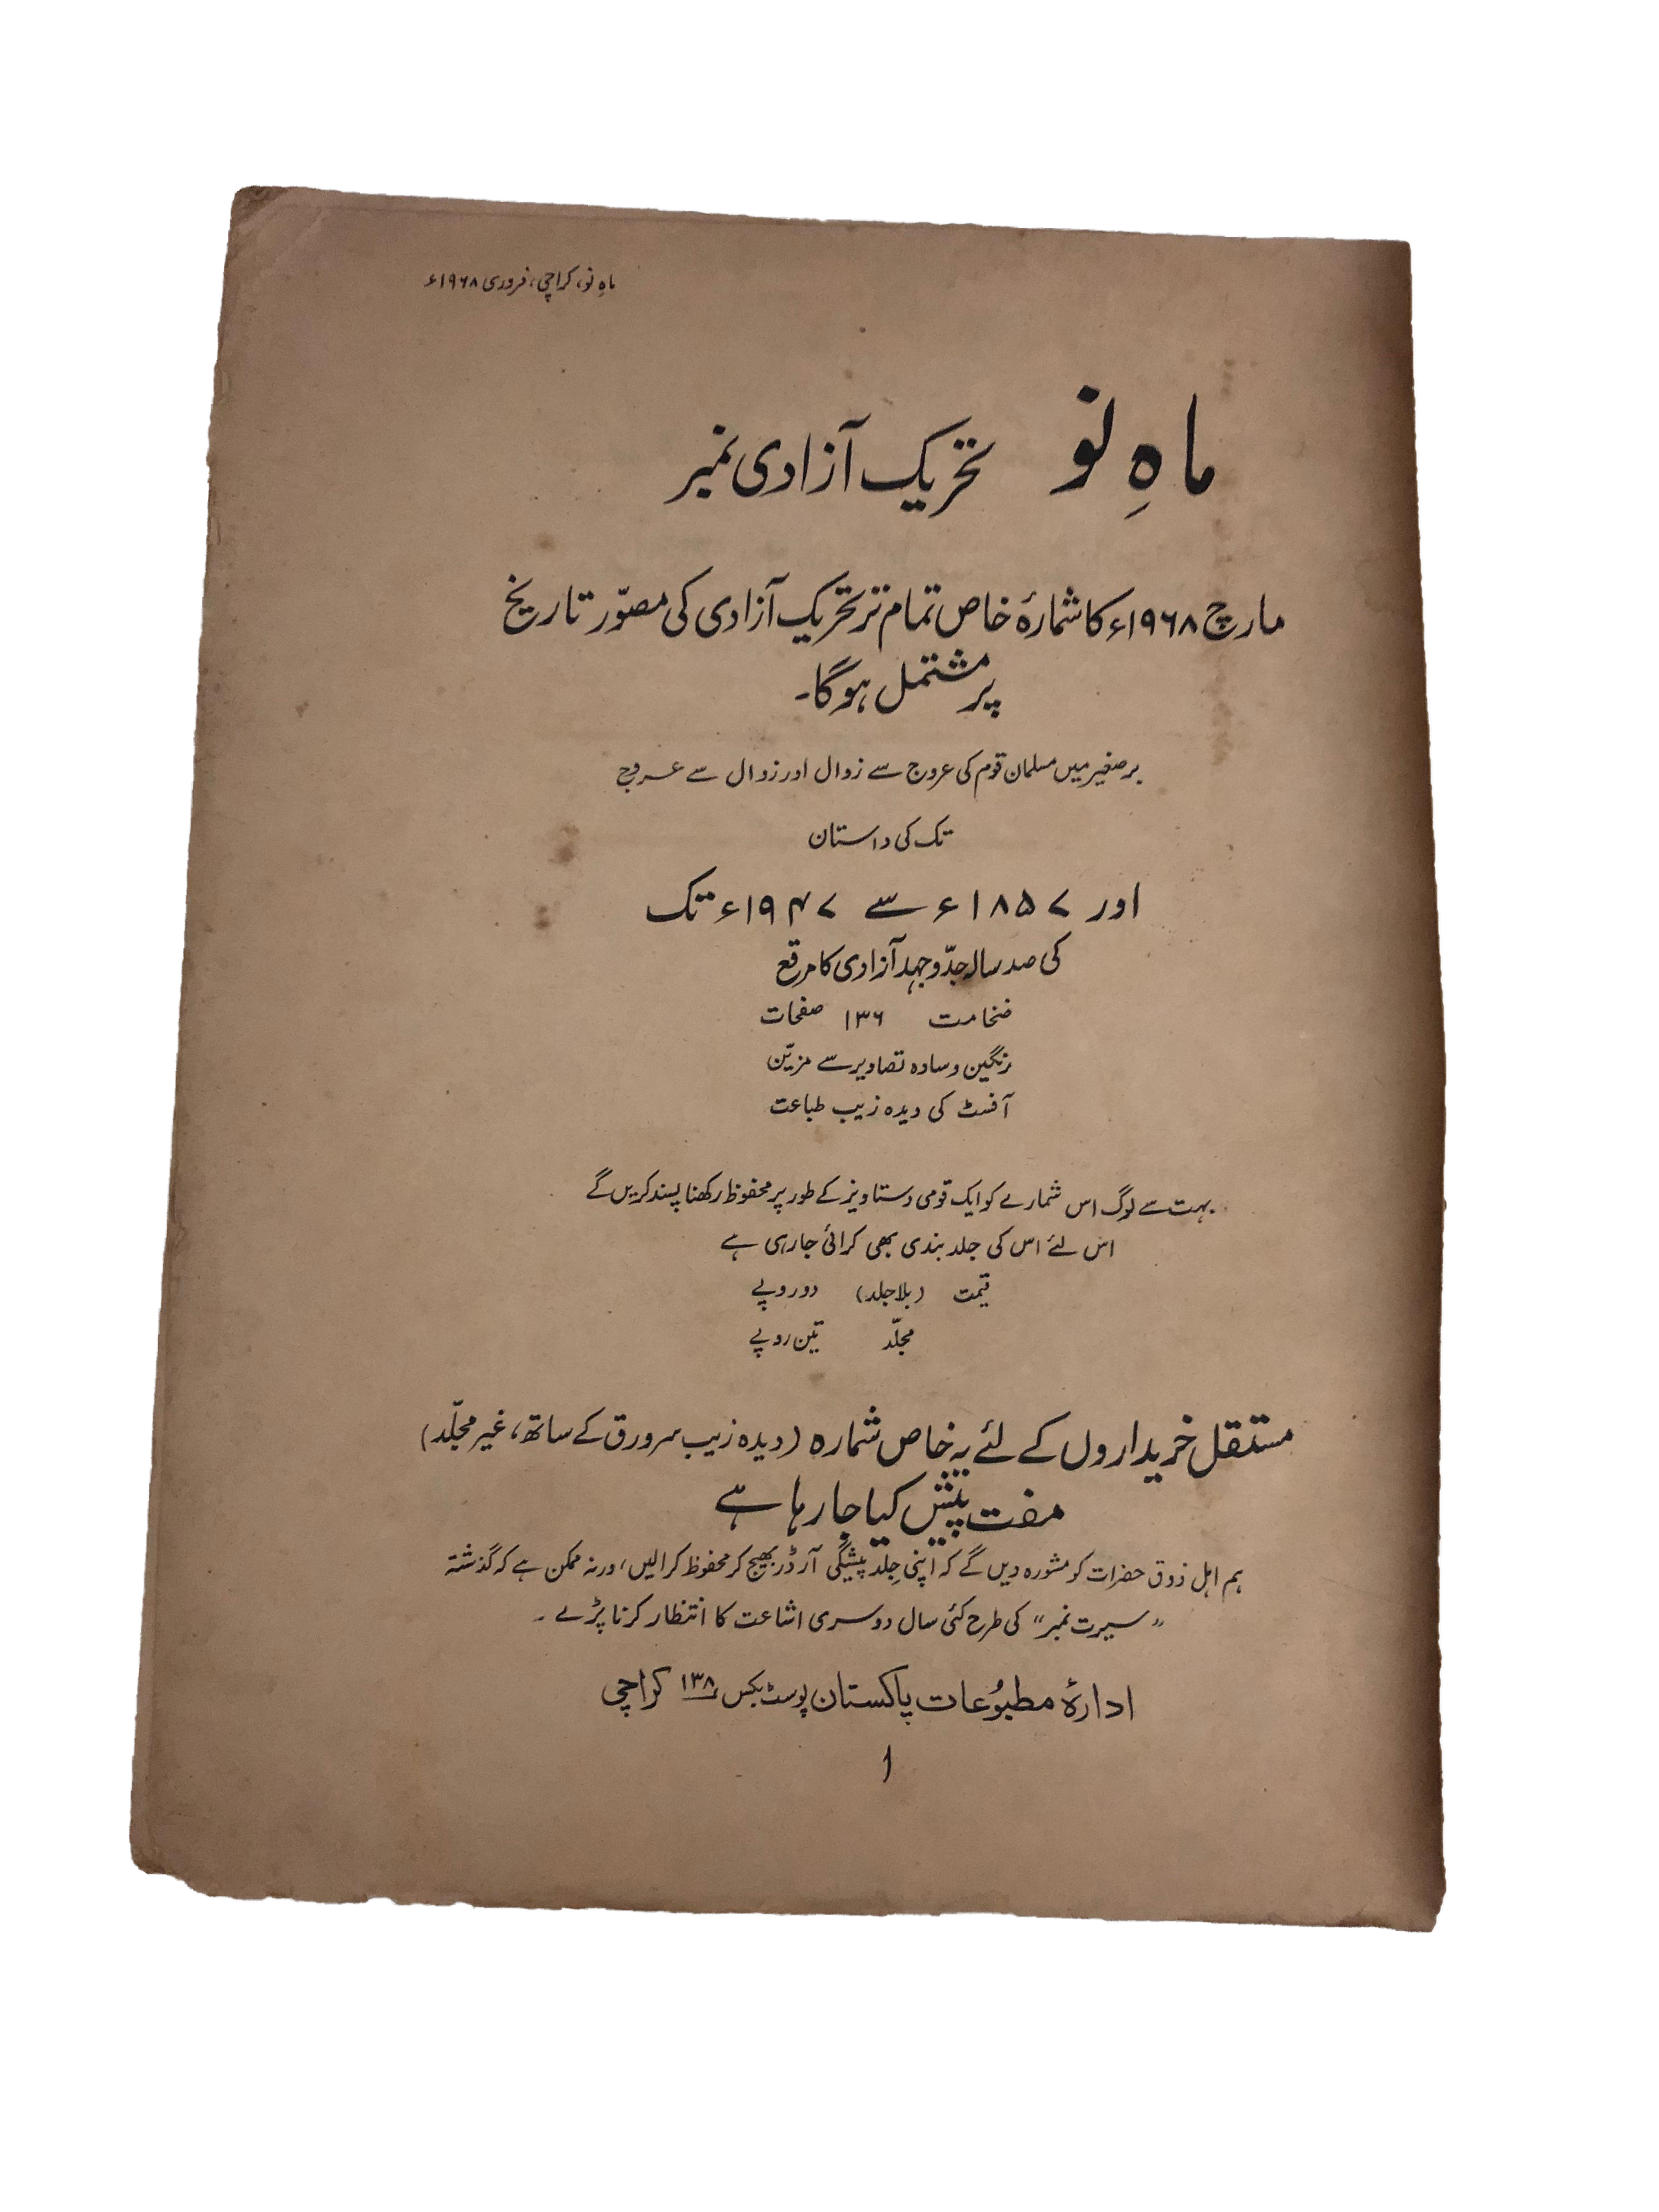 ماہِ نو، کراچی، فروری ۱۹۶۸ء
ماہِ نو تحریک آزادی نمبر
مارچ ۱۹۶۸ء کا شمارۂ خاص تمام تر تحریک آزادی کی مصوّر تاریخ
پر مشتمل ہوگا۔
برصغیر میں مسلمان قوم کی عروج سے زوال اور زوال سے عروج
تک کی داستان
اور ۱۸۵۷ء سے ۱۹۴۷ء تک
کی صد سالہ جدّوجہد آزادی کا مرقع
ضخامت ۱۳۶ صفحات
رنگین و سادہ تصاویر سے مزیّن
آفسٹ کی دیدہ زیب طباعت
بہت سے لوگ اس شمارے کو ایک قومی دستاویز کے طور پر محفوظ رکھنا پسند کریں گے
اس لئے اس کی جلد بندی بھی کرائی جا رہی ہے
قیمت (بلا جلد) دو روپے
مجلّد تین روپے
مستقل خریداروں کے لئے یہ خاص شمارہ (دیدہ زیب سرورق کے ساتھ، غیر مجلّد)
مفت پیش کیا جا رہا ہے
ہم اہل ذوق حضرات کو مشورہ دیں گے کہ اپنی جِلد پیشگی آرڈر بھیج کر محفوظ کرالیں، ورنہ ممکن ہے کہ گذشتہ
"سیرت نمبر" کی طرح کئی سال دوسری اشاعت کا انتظار کرنا پڑے۔
ادارۂ مطبُوعات پاکستان پوسٹ بکس ۱۳۸ کراچی
۱